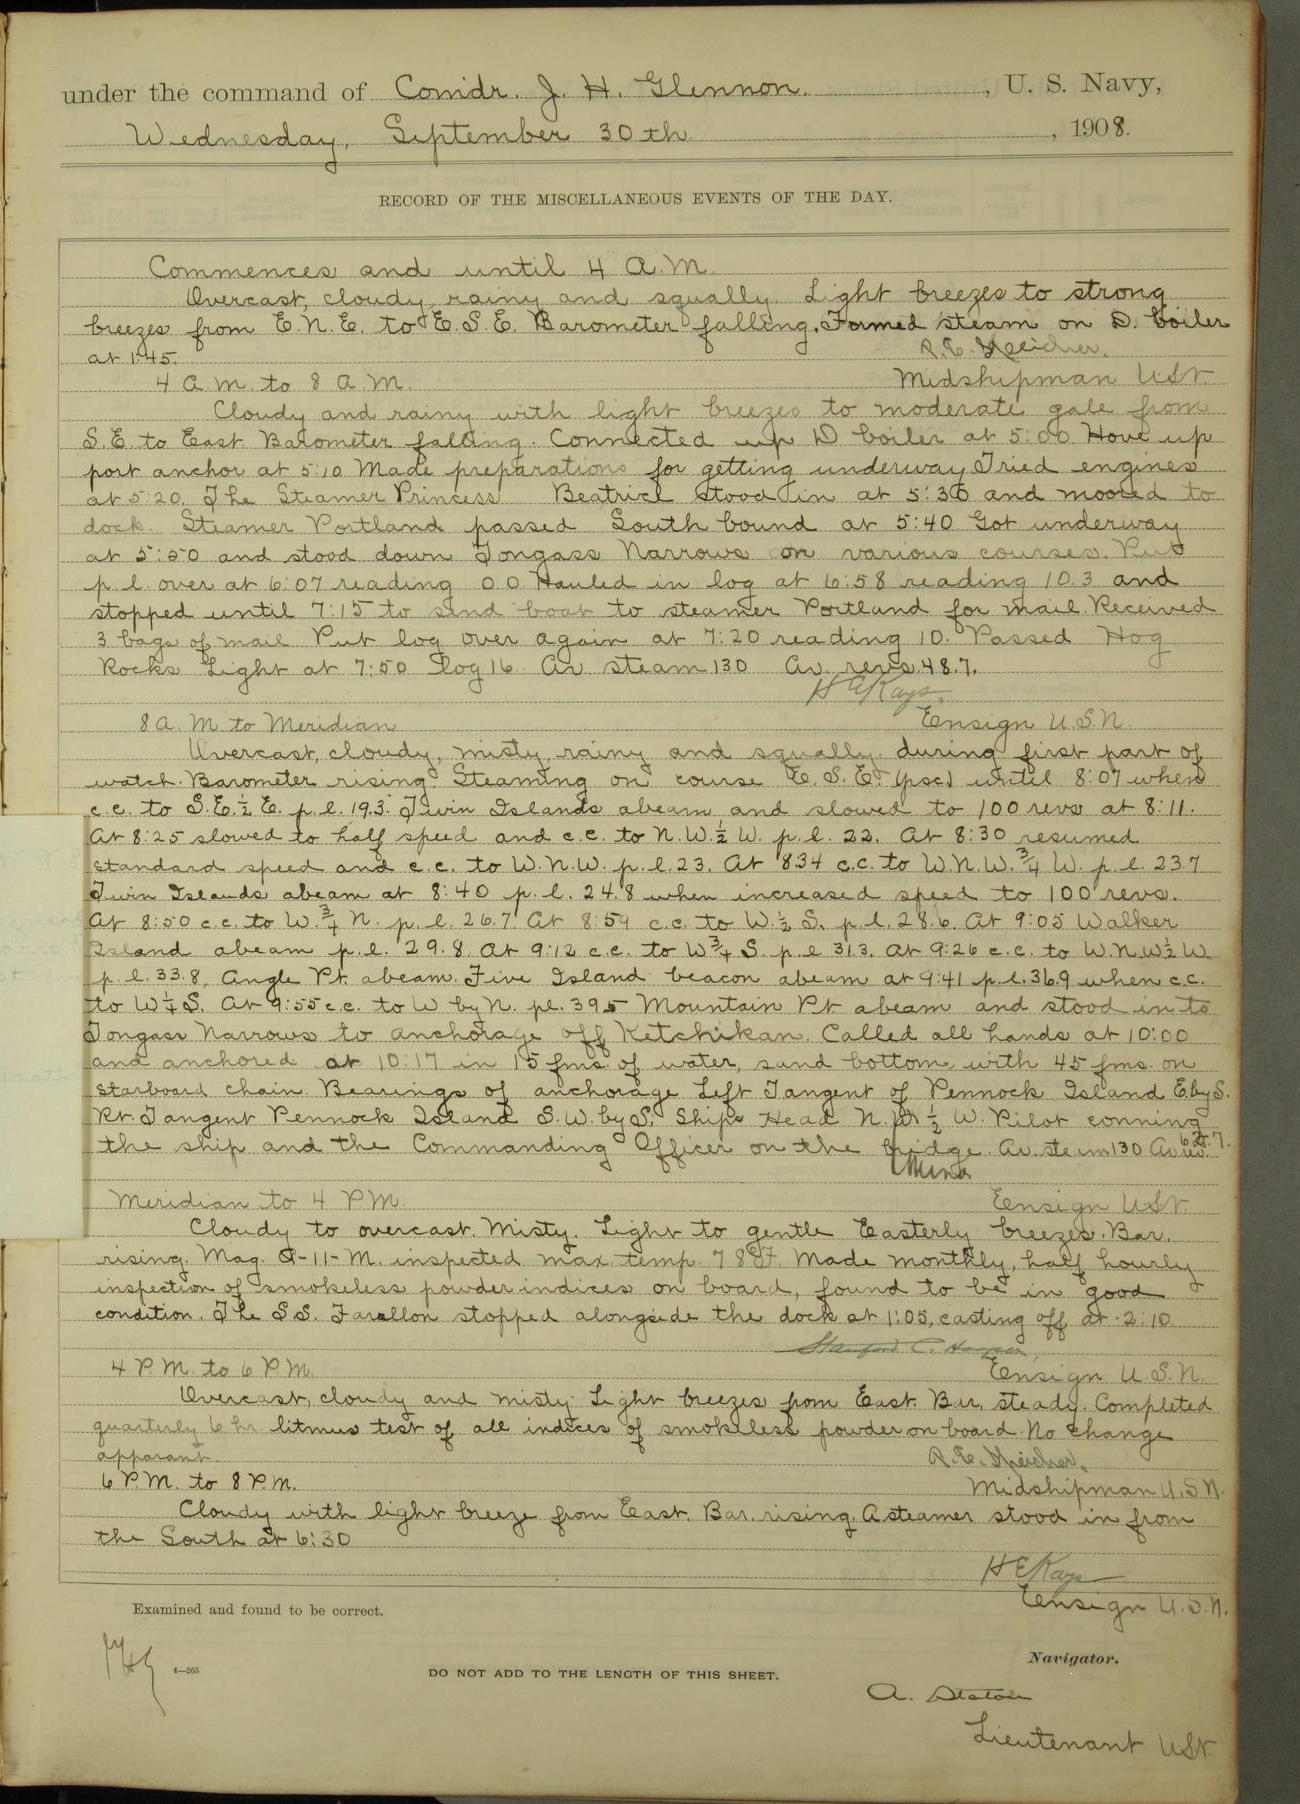 under the command of Comdr. J. H. Glennon., U. S. Navy,
Wednesday, September 30th, 1908.
RECORD OF THE MISCELLANEOUS EVENTS OF THE DAY.
Commences and until 4 A.M.
Overcast, cloudy, rainy and squally. Light breezes to strong
breezes from E.N.E. to E.S.E. Barometer falling. Formed steam on D. boiler
at 1:45.
4 A.M. to 8 A.M. Midshipman USN.
Cloudy and rainy with light breezes to moderate gale from
S.E. to East Barometer falling. Connected up D boiler at 5:00 Hove up
port anchor at 5:10 Made preparations for getting underway Tried engines
at 5:20. The Steamer Princess Beatrice stood in at 5:30 and moored to
dock. Steamer Portland passed South bound at 5:40 Got underway
at 5:50 and stood down Tongass Narrows on various courses. Put
p.l. over at 6:07 reading 0.0 Hauled in log at 6:58 reading 10.3 and
stopped until 7:15 to send boat to steamer Portland for mail. Received
3 bags of mail Put log over again at 7:20 reading 10. Passed Hog
Rocks Light at 7:50 log 16 Av steam 130 Av. revs. 48.7.
H E Kays.
8 A.M. to Meridian Ensign U.S.N.
Overcast, cloudy, misty, rainy and squally during first part of
watch. Barometer rising. Steaming on course E.S.E. (psc) until 8:07 when
c.c. to S.E.½E. p.l. 19.3. Twin Islands abeam and slowed to 100 revs at 8:11.
At 8:25 slowed to half speed and c.c. to N.W.½W. p.l. 22. At 8:30 resumed
standard speed and c.c. to W.N.W. p.l. 23. At 834 c.c. to W.N.W.¾W p.l. 23.7
Twin Islands abeam at 8:40 p.l. 24.8 when increased speed to 100 revs.
At 8:50 c.c. to W.¾N. p.l. 26.7 At 8:59 c.c. to W.½S. p.l. 28.6. At 9:05 Walker
Island abeam p.l. 29.8. At 9:12 c.c. to W¾S. p.l 31.3. At 9:26 c.c. to W.N.W½W
p.l. 33.8, Angle Pt. abeam. Five Island beacon abeam at 9:41 p.l. 36.9 when c.c.
to W¼S. At 9:55 c.c. to W by N. pl. 39.5 Mountain Pt abeam and stood in to
Tongass Narrows to anchorage off Ketchikan. Called all hands at 10:00
and anchored at 10:17 in 15 fms. of water, sand bottom with 45 fms. on
starboard chain. Bearings of anchorage Left Tangent of Pennock Island E. by S.
Rt. Tangent Pennock Island S.W. by S. Ships Head N.W½W. Pilot conning
the ship and the Commanding Officer on the bridge. Av. steam 130 Av rev.
Meridian to 4 P.M. Ensign USN.
Cloudy to overcast. Misty. Light to gentle Easterly breezes. Bar.
rising. Mag. inspected max. temp. 78°F. Made monthly, half hourly
inspection of smokeless powder indices on board, found to be in good
condition. The S.S. Farallon stopped alongside the dock at 1:05, casting off at 2:10
4 P.M. to 6 P.M. Ensign U.S.N.
Overcast, cloudy and misty. Light breezes from East. Bar. steady. Completed
quarterly 6 hr. litmus test of all indices of smokeless powder on board. No change
apparant.
6 P.M. to 8 P.M. Midshipman U.S.N.
Cloudy with light breeze from East. Bar. rising. A steamer stood in from
the South at 6:30
H E Kays
Ensign U.S.N.
Examined and found to be correct.
4—265
DO NOT ADD TO THE LENGTH OF THIS SHEET.
Navigator.
Lieutenant USN.